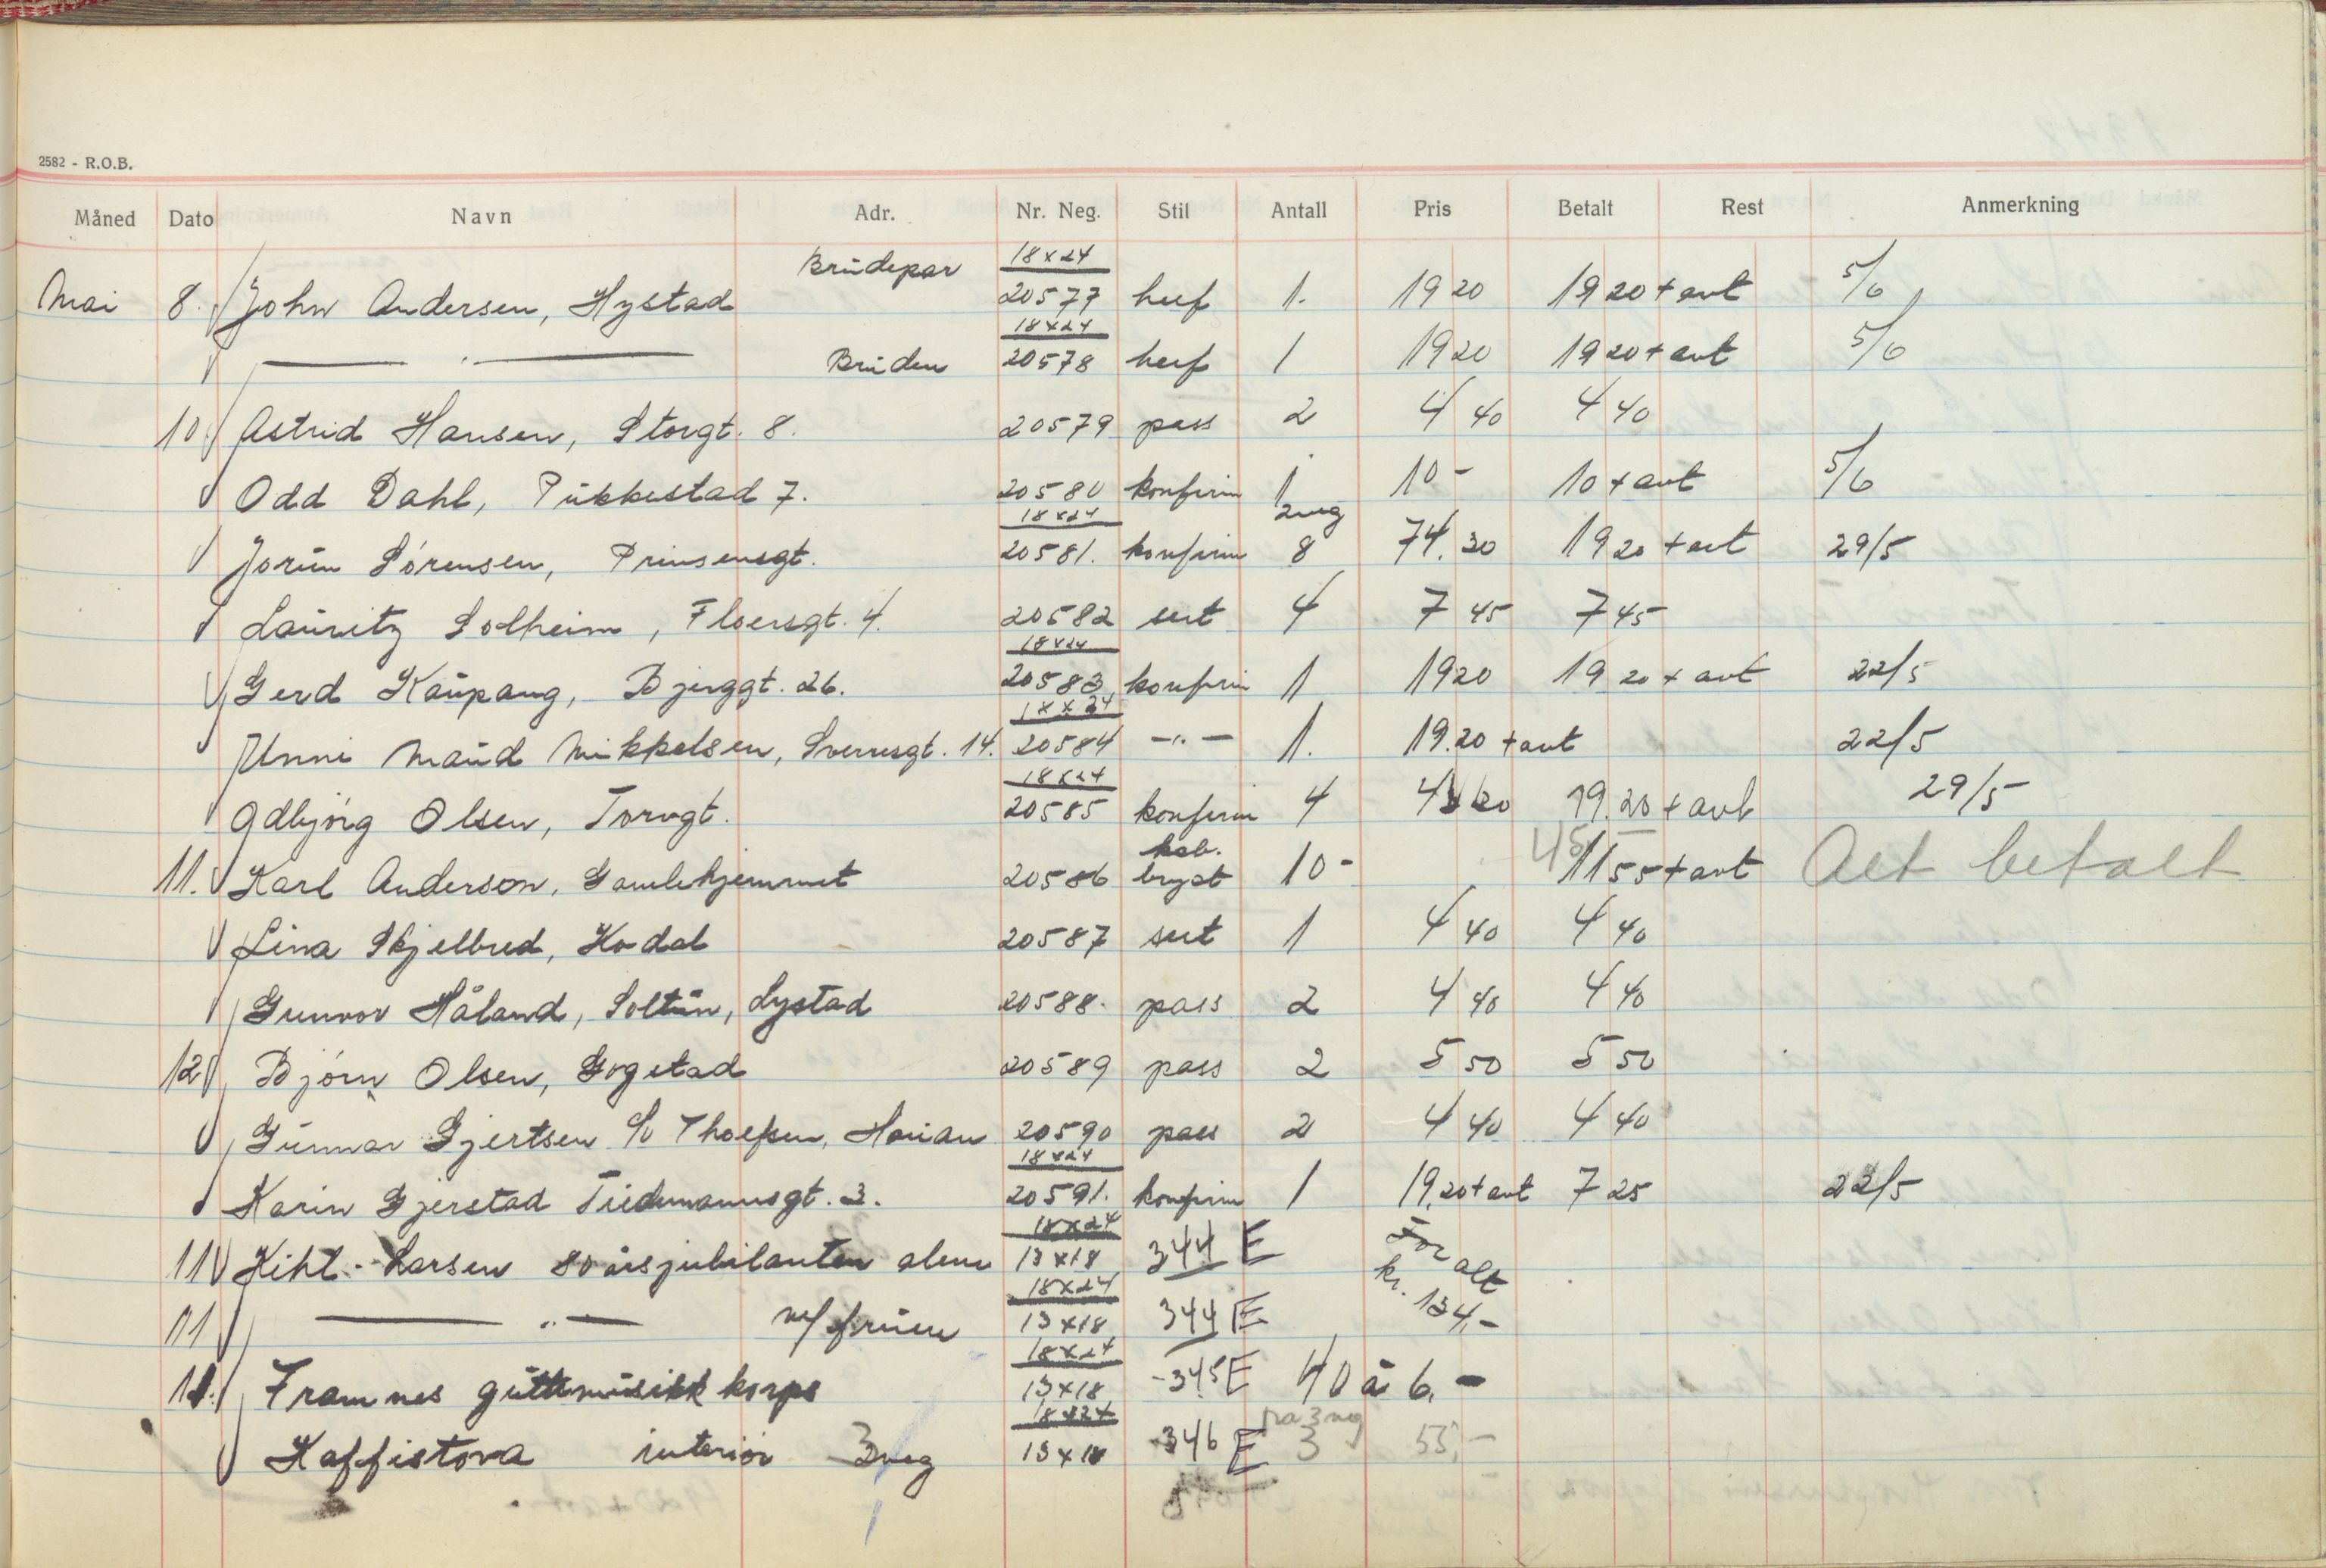 2582 - R.O.B.
Måned Dato Navn Adr. Nr. Neg. Stil Antall Pris Betalt Rest Anmerkning
Brudepar 18x24
Mai 8. John Andersen, Hystad 20577 huf 1. 19 20 19 20 + avt 5/6
18x24
— " — Bruden 20578 huf 1 19 20 19 20 + avt 5/6
10. Astrid Hansen, Storgt. 8. 20579 pass 2 4 40 4 40
Odd Dahl, Pukkestad 7. 20580 konfirm 1 10 - 10 + avt 5/6
18x24 2neg
Jorun Sørensen, Prinsensgt. 20581. konfirm 8 74.30 19 20 + avt 29/5
Lauritz Solheim, Floersgt. 4. 20582 sert 4 7 45 7 45
18x24
Gerd Kaupang, Bjerggt. 26. 20583 konfirm 1 19 20 19 20 + avt 22/5
18x24
Unni Maud Mikkelsen, Sverresgt. 14. 20584 — " — 1. 19.20 + avt 22/5
18x24
Odbjørg Olsen, Torvgt. 20585 konfirm 4 19.20 + avt 29/5
kab. 45
11. Karl Anderson, Gamlehjemmet 20586 bryst 10 - 11 55 + avt Alt betalt
Lina Skjelbred, Kodal 20587 sert 1 4 40 4 40
Gunvor Håland, Soltun, Lystad 20588. pass 2 4 40 4 40
12 Bjørn Olsen, Gogstad 20589 pass 2 5 50 5 50
Gunnar Gjertsen Thoresen, 20590 pass 2 4 40 4 40
18x24
Karin Gjerstad Tiedemannsgt. 3. 20591. konfirm 1 19.20 + avt 7 25 22/5
18x24
11 Kihl-Larsen 80 årsjubilanten alene 13x18 344 E For alt
18x24 kr. 134,-
11 — " — m/fruen 13x18 344 E
18x24
11. Framnes guttemusikk korps 13x18 -345 E 40 à 6,-
18x24 pa 3 neg
Kaffistova interiør 3 neg 13x18 -346 E 3 53,-